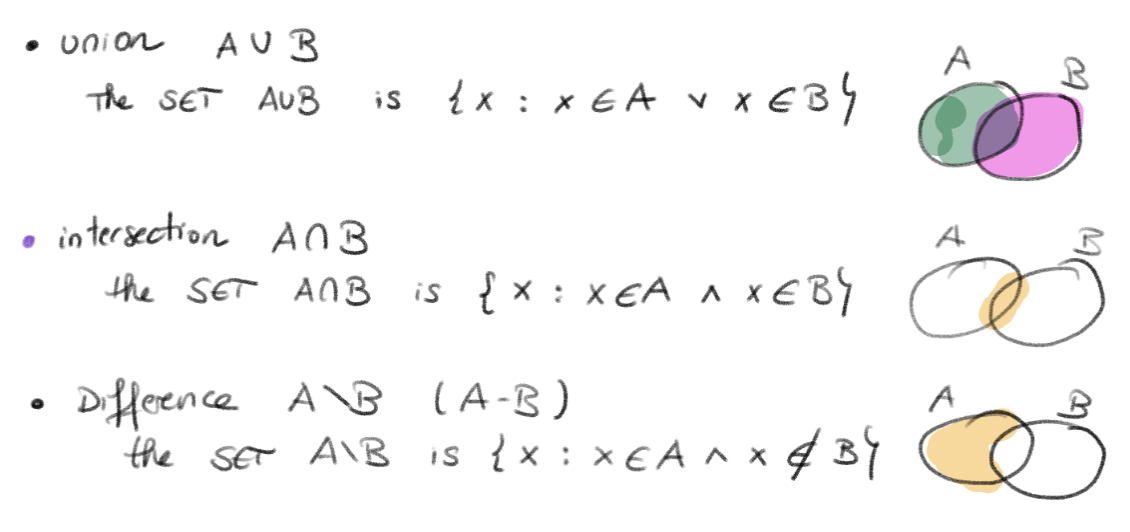 • union A ∪ B
The SET A∪B is { x : x ∈ A ∨ x ∈ B }
A B
• intersection A∩B
the SET A∩B is { x : x ∈ A ∧ x ∈ B }
A B
• Difference A \ B (A - B)
the SET A\B is { x : x ∈ A ∧ x ∉ B }
A B